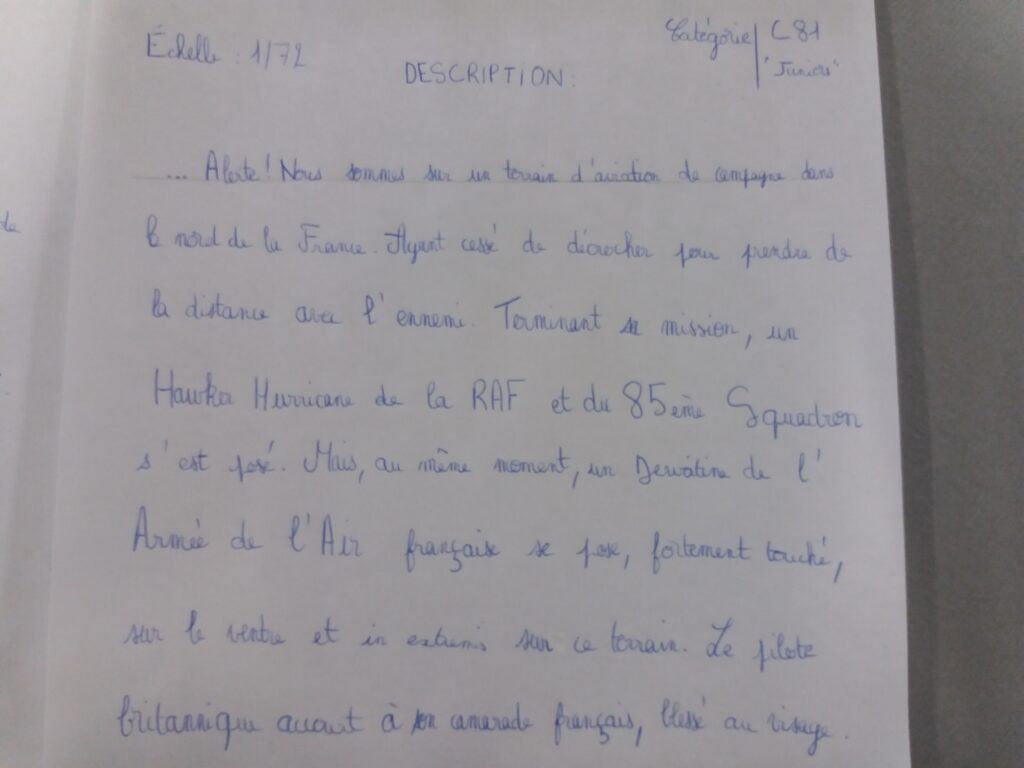 Échelle : 1/72
Catégorie C81
"Juniors"
DESCRIPTION:
... Alerte! Nous sommes sur un terrain d'aviation de campagne dans
le nord de la France. Ayant cessé de décrocher pour prendre de
la distance avec l'ennemi. Terminant sa mission, un
Hawker Hurricane de la RAF et du 85ème Squadron
s'est posé. Mais, au même moment, un Dewoitine de l'
Armée de l'Air française se pose, fortement touché,
sur le ventre et in extremis sur ce terrain. Le pilote
britannique accourt à son camarade français, blessé au visage.
de